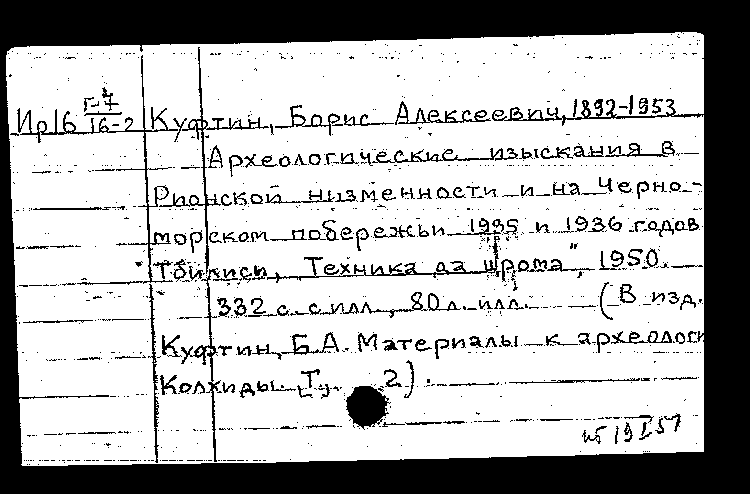 Ир16 Г-7/16-2 Куфтин, Борис Алексеевич, 1892-1953
Археологические изыскания в
Рионской низменности и на Черно-
морском побережьи 1935 и 1936 годов
Тбилиси, "Техника да шрома", 1950.
332 с. с илл., 80 л. илл. (В изд.
Куфтин, Б.А. Материалы к археологи
Колхиды. Т. 2).
19 I 51